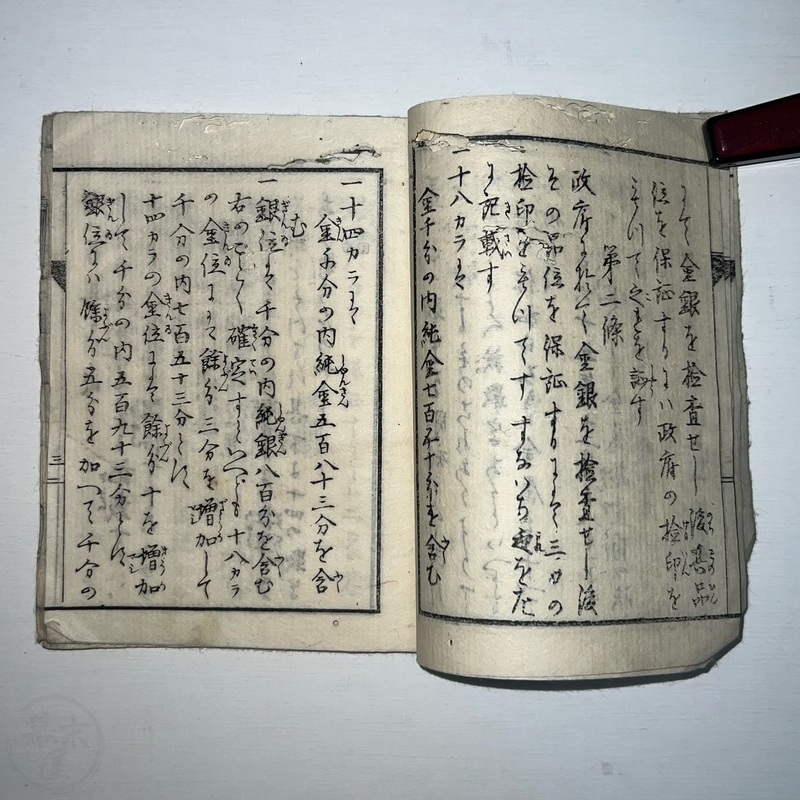 にて金銀を検査せし後其品
位を保証するには政府の検印を
もつて之を証す
第二條
政府に於て金銀を検査せし後
その品位を保証するにはて三分の
検印をもつてす すなはち を左
に記載す
一十八カラには
金千分の内純金七百五十分を含む
一十四カラには
金千分の内純金五百八十三分を含
む
一銀位には千分の内純銀八百分を含む
右のごとく確定すといへども十八カラ
の金位にて餘分三分を増加して
千分の内七百五十三分とし
十四カラの金位には餘分十を増加
して千分の内五百九十三分とし
銀位には餘分五分を加へて千分の
三